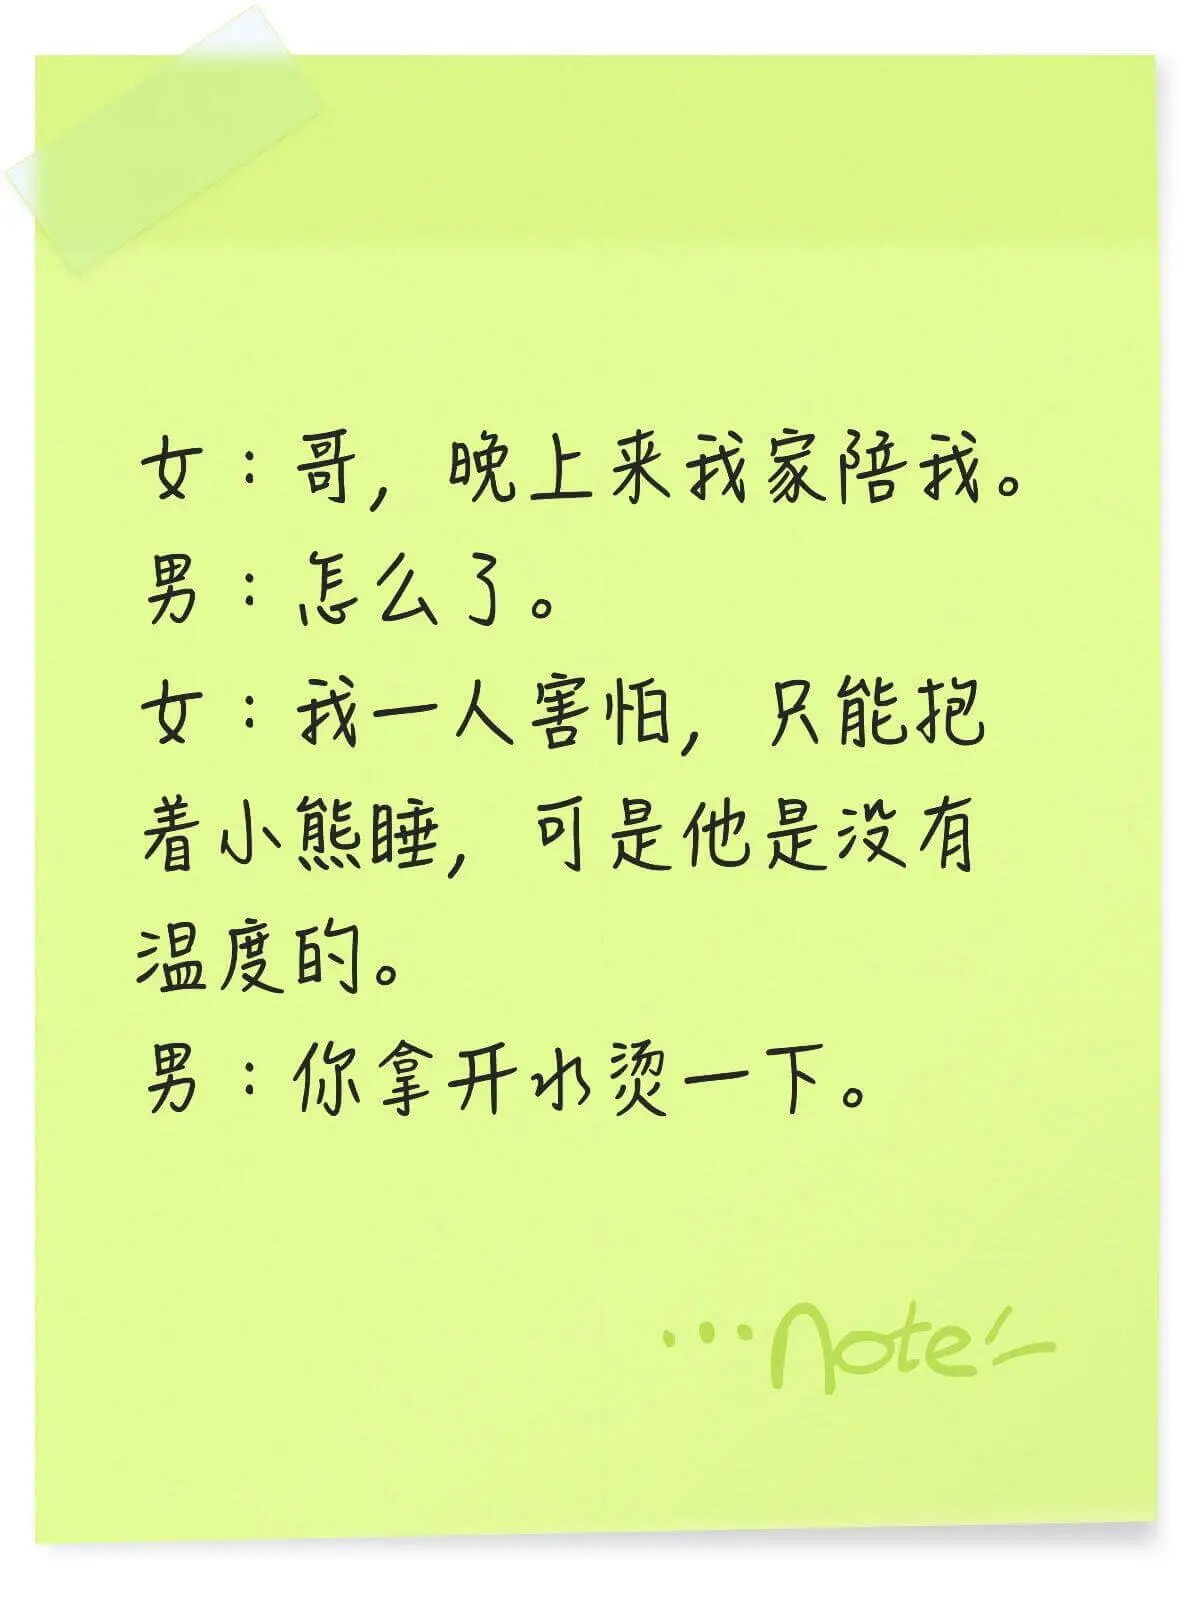 女：哥，晚上来我家陪我。
男：怎么了。
女：我一人害怕，只能抱
着小熊睡，可是他是没有
温度的。
男：你拿开水烫一下。
...note